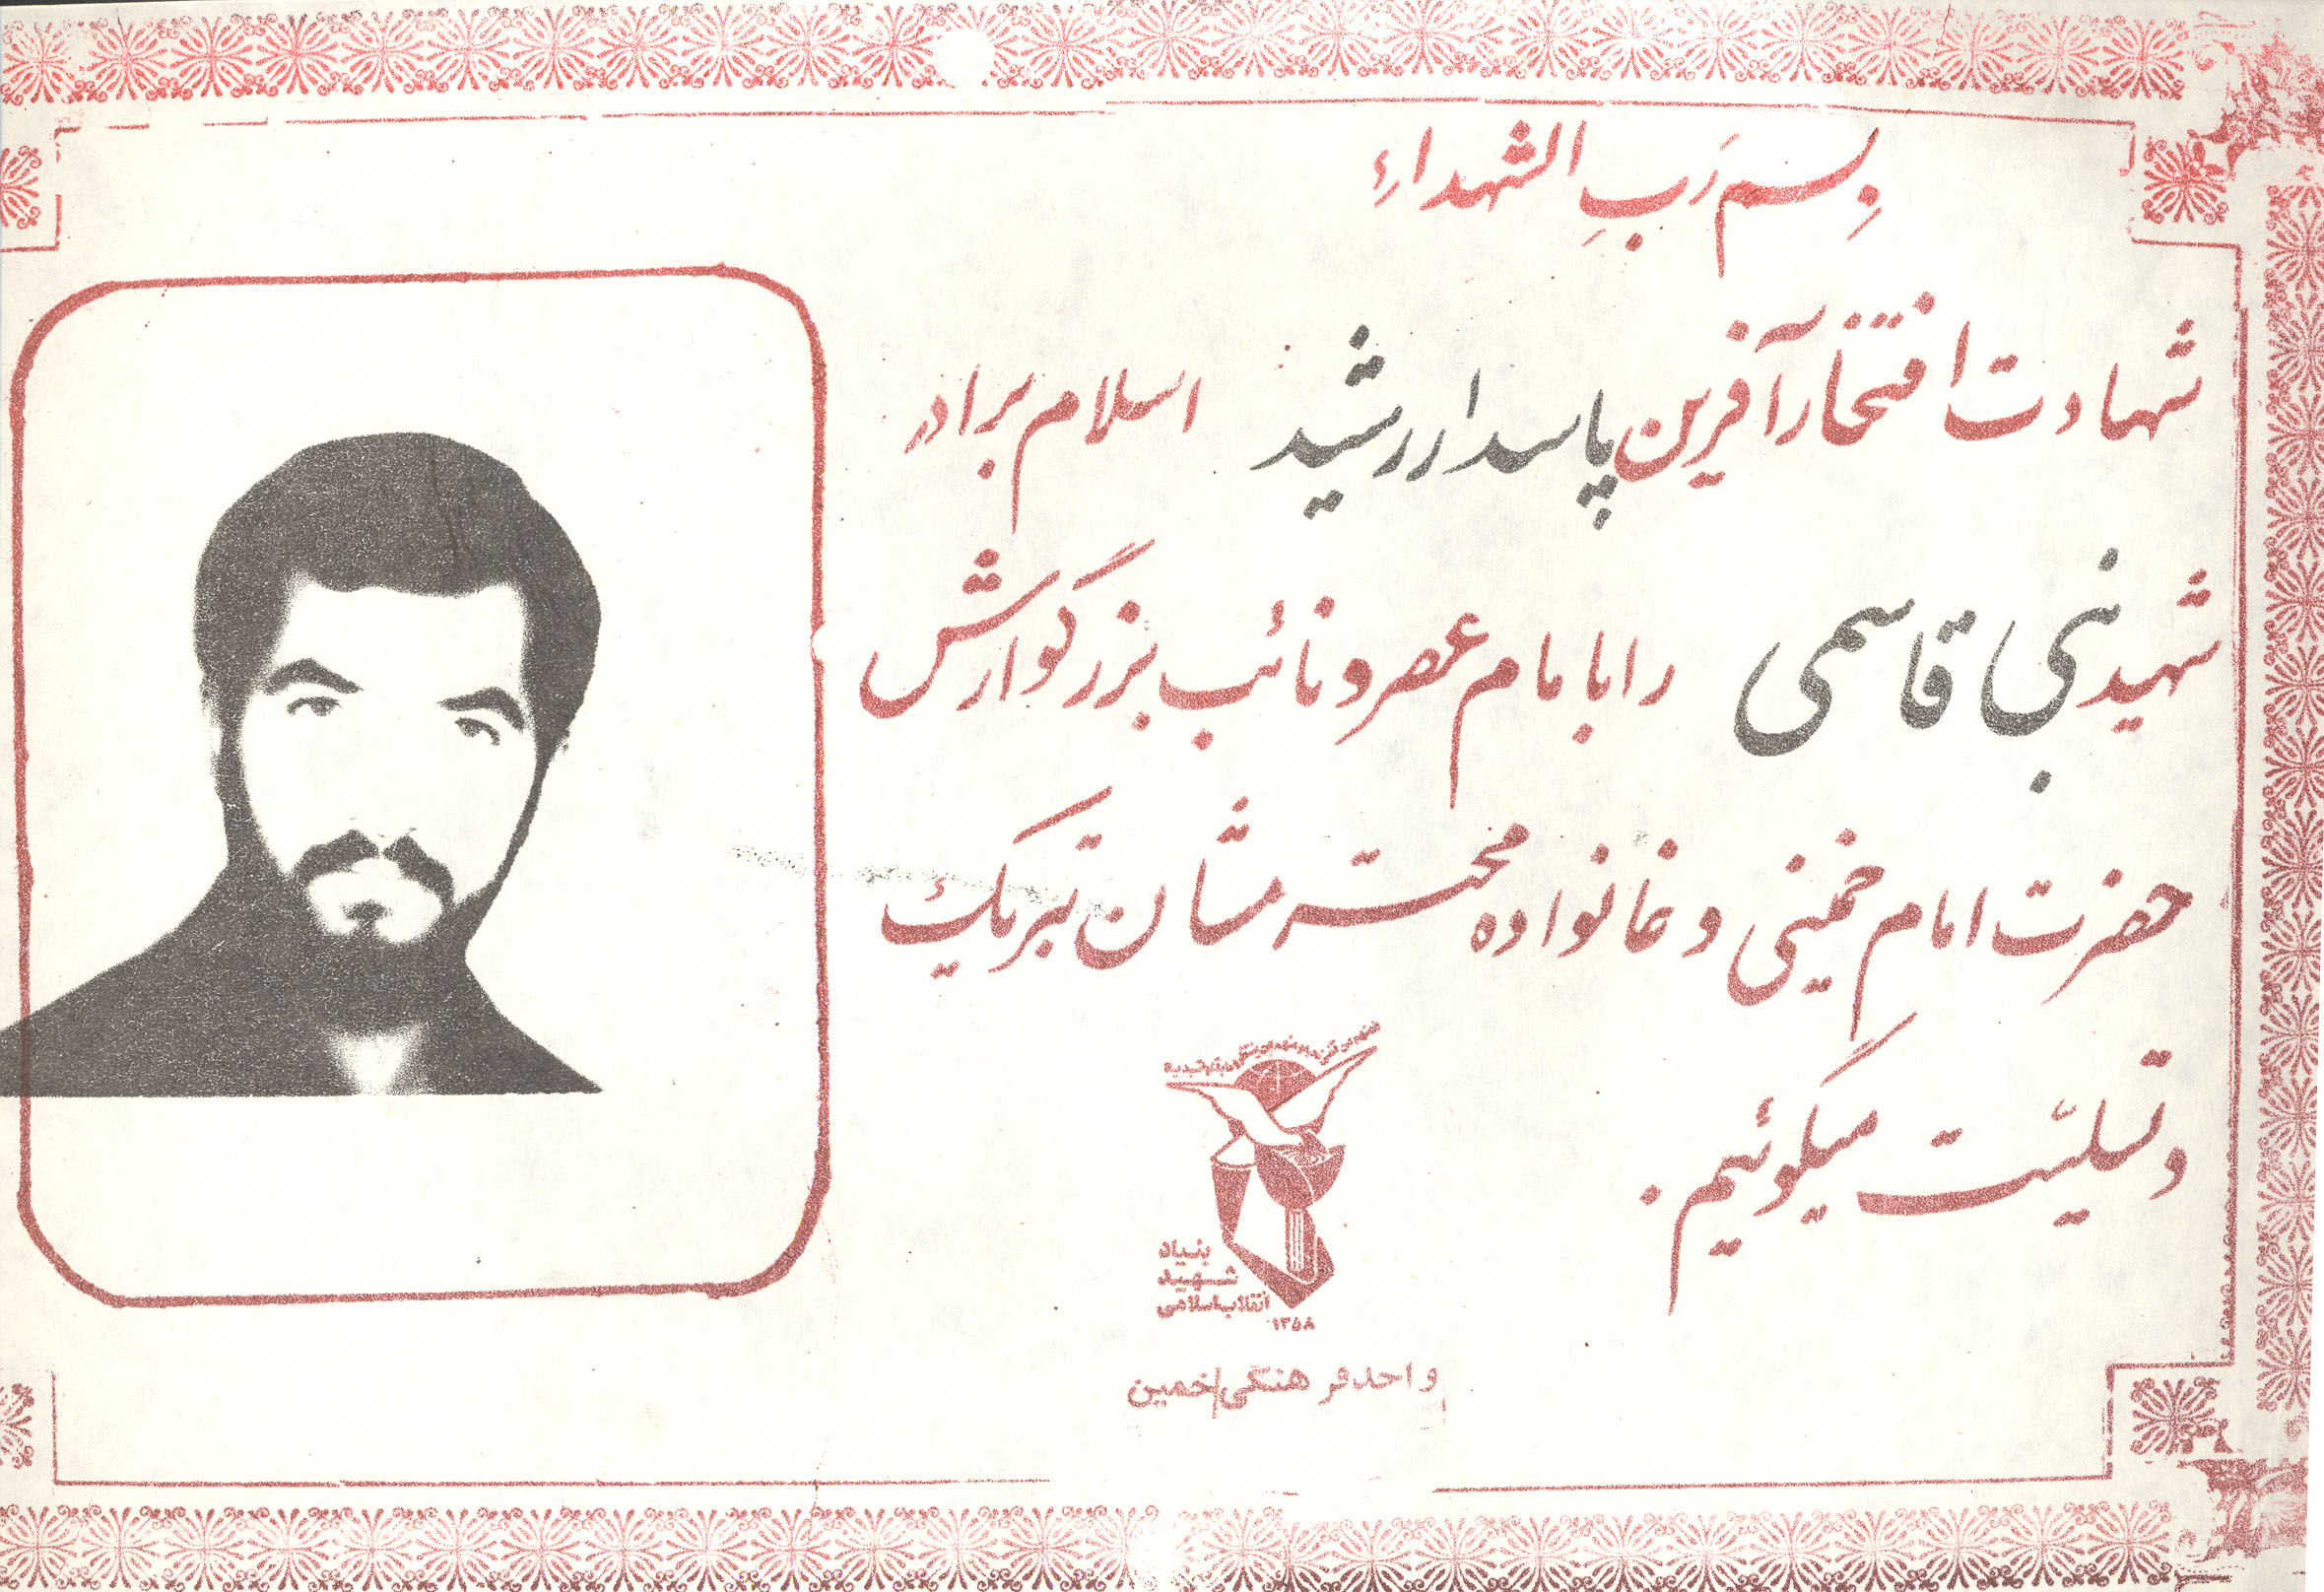 بِسم رَبِ الشهداءِ
شهادت افتخار آفرین پاسدار رشید اسلام برادر
شهید نبی قاسمی را با مام عصر و نائب بزرگوارش
حضرت امام خمینی و خانواده محترمشان تبریک
و تسلیّت میگوئیم.
بنیاد
شهید
انقلاب اسلامی
۱۳۵۸
واحد فرهنگی/خمین